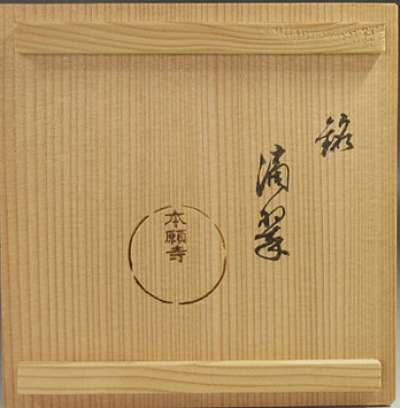 銘
滴翠
本願寺